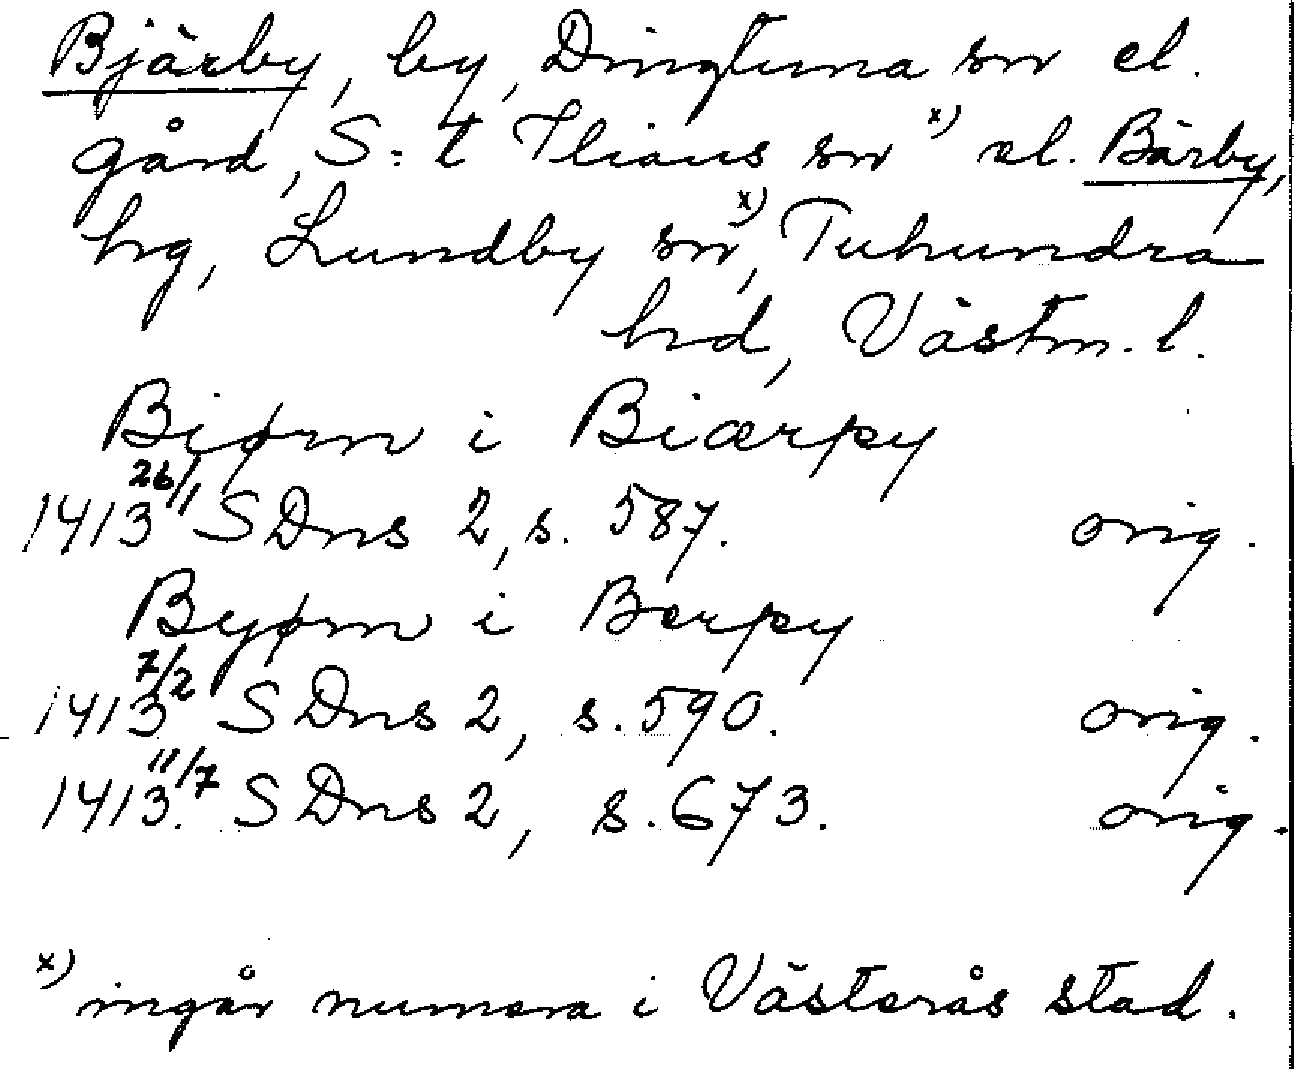 Bjärby, by, Dingtuna sn el.
gård, S:t Ilians sn x) el. Bärby,
hg, Lundby sn x), Tuhundra
hd, Västm. l.
Biørn i Biærpy
1413 26/1 SDns 2, s. 587. orig.
Byørn i Berpy
1413 7/2 SDns 2, s. 590. orig.
1413. 11/7 SDns 2, s. 673. orig.
x) ingår numera i Västerås stad.